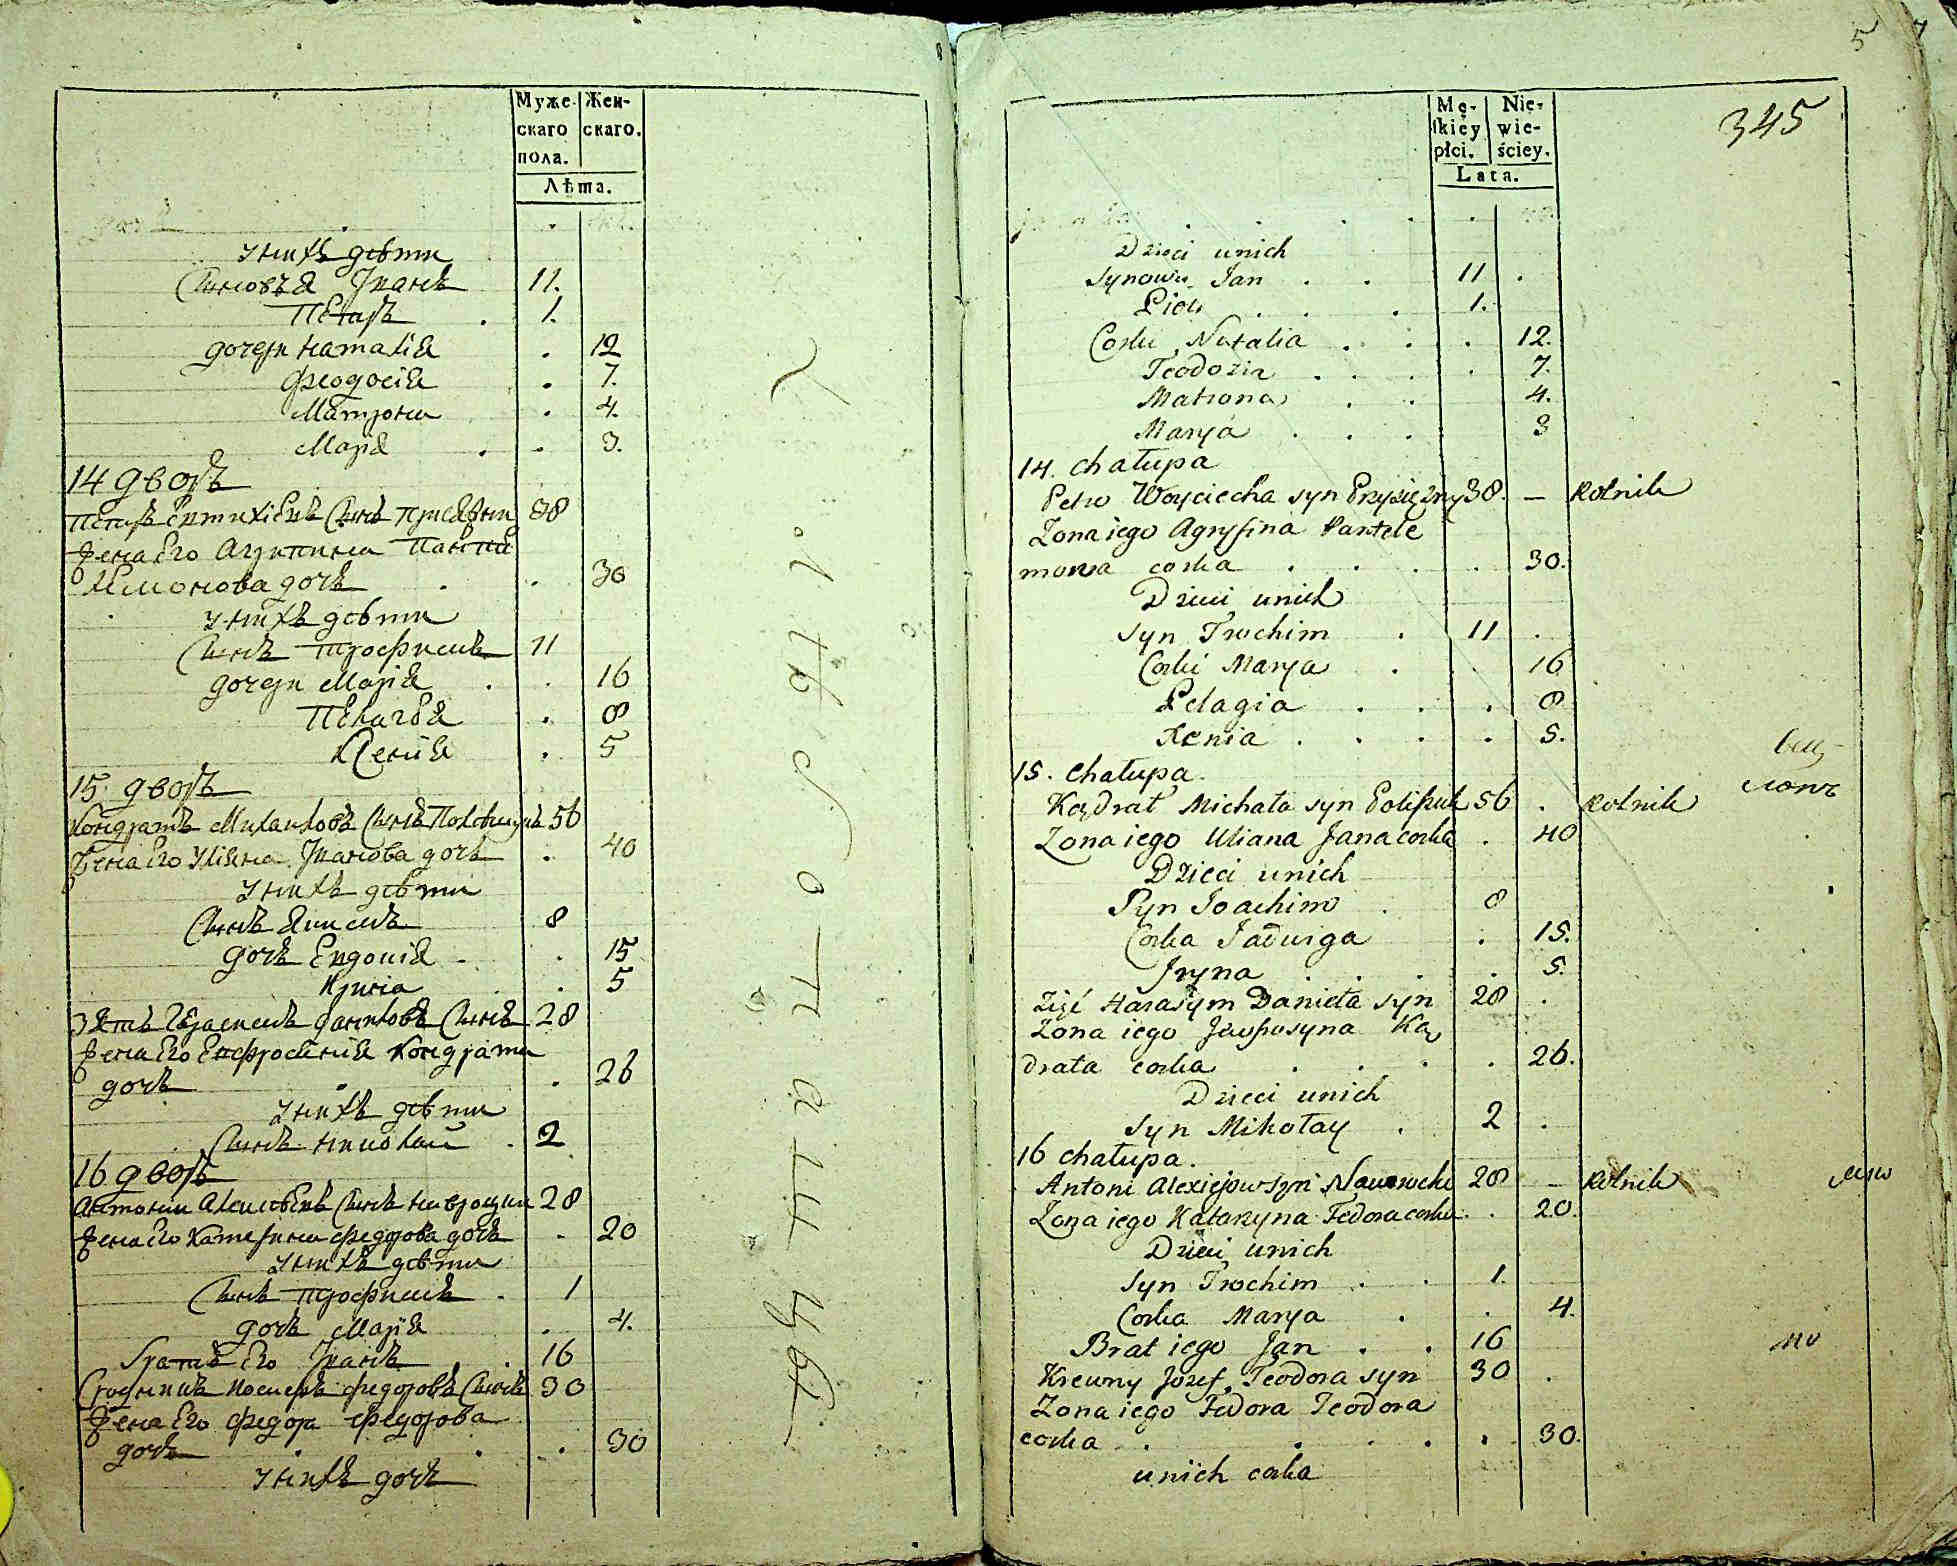 Муже- Жен-
скаго скаго.
пола.
Лѣта.
у нихъ дѣти
Сыновья Иванъ 11.
Петръ 1.
дочери Наталія 12
Феодосія 7.
Матрона 4.
Марія 3.
14 дворъ
Петръ Евтихіевъ Сынъ 38
Жена Его Агрипина Панте
лимонова дочь 30
у нихъ дѣти
Сынъ Трофимъ 11
дочери Марія 16
Пелагѣя 8
Ксенія 5
15. дворъ
Кондратъ Михаиловъ Сынъ 56
Жена Его Уліяна Иванова дочь 40
у нихъ дѣти
Сынъ Якимъ 8
дочь Евдокія 15
Ирина 5
Зять Герасимъ Даниловъ Сынъ 28
Жена Его Ефросинія Кондрата
дочь 26
у нихъ дѣти
Сынъ Николай 2
16 дворъ
Антонъ Алексѣевъ Сынъ 28
Жена Его Катерина Федорова дочь 20
у нихъ дѣти
Сынъ Трофимъ 1
дочь Марія 4.
Братъ Его Иванъ 16
Сродникъ Иосифъ Федоровъ Сынъ 30
Жена Его Федора Федорова
дочь 30
у нихъ дочь
5
345
Mę- Nie-
skiey wie-
płci. ściey.
Lata.
Dzieci unich
Synowie Jan 11
Piotr 1.
Corki Natalia 12.
Teodozia 7.
Matrona 4.
Marya 3
14. chałupa
Petro Woyciecha syn Przysiężny 38. — Rolnik
Zona iego Agryfina Pantele
mona corka 30.
Dzieci unich
Syn Trochim 11
Corki Marya 16
Pelagia 8
Xenia 5.
15. chałupa.
Kądrat Michała syn Polipuk 56 Rolnik
Zona iego Uliana Jana corka 40
Dzieci unich
Syn Joachim 8
Corka Jadwiga 15.
Jryna 5.
Zięć Harasym Daniela syn 28
Zona iego Jewfrosyna Ką
drata corka 26.
Dzieci unich
Syn Mikołay 2
16 chałupa.
Antoni Alexiejow syn Nawrocki 28 — Rolnik
Zona iego Katarzyna Fedora corka 20.
Dzieci unich
Syn Trochim 1.
Corka Marya 4.
Brat iego Jan 16
Krewny Jozef Teodora syn 30
Zona iego Fedora Teodora
corka 30.
unich corka